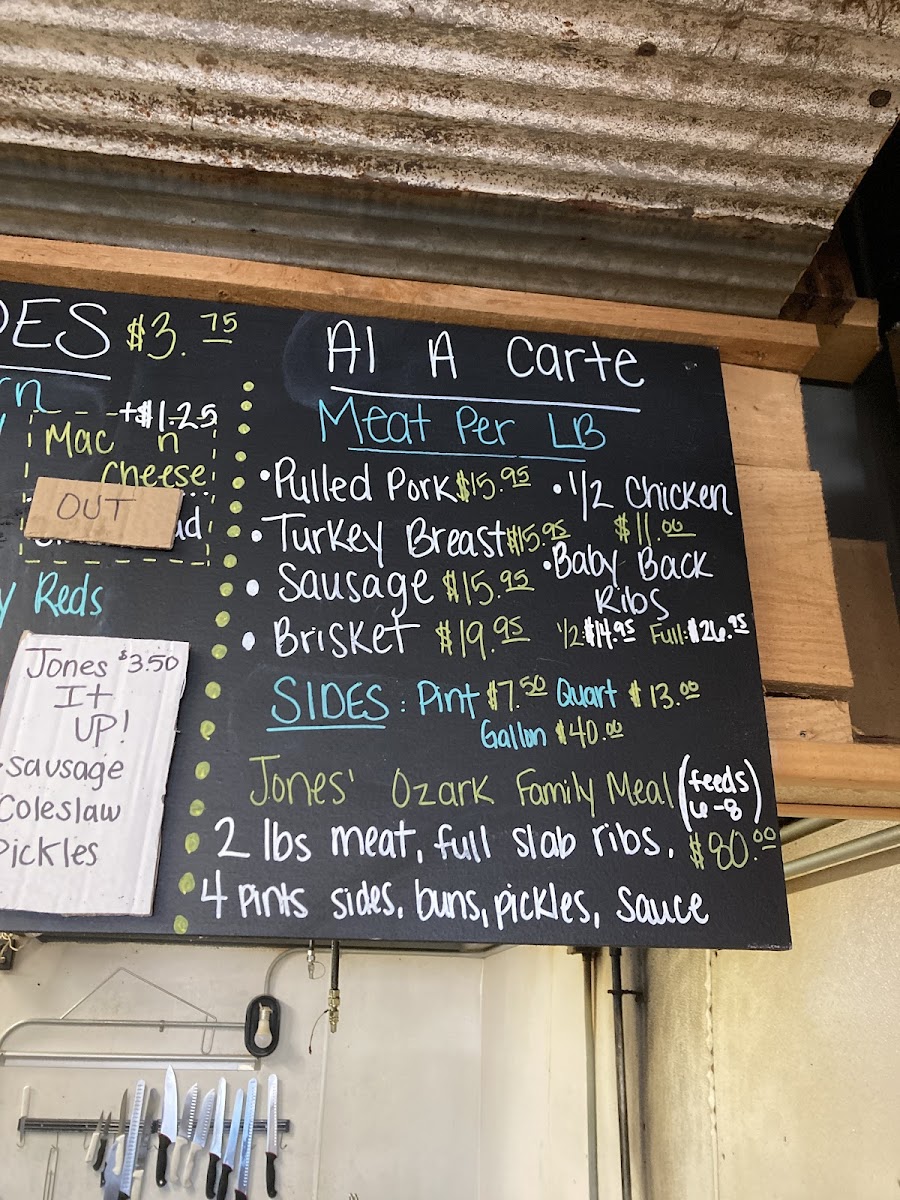 DES $3.75
rn
+$1.25
Mac n
Cheese
OUT
ad
y Reds
Jones $3.50
It
UP!
Sausage
Coleslaw
Pickles
Al A Carte
Meat Per LB
• Pulled Pork $15.95
• Turkey Breast $15.95
• Sausage $15.95
• Brisket $19.95
• 1/2 Chicken
$11.00
• Baby Back
Ribs
1/2: $14.95 Full: $26.95
SIDES: Pint $7.50 Quart $13.00
Gallon $40.00
Jones' Ozark Family Meal (feeds 6-8)
2 lbs meat, full slab ribs, $80.00
4 pints sides, buns, pickles, sauce